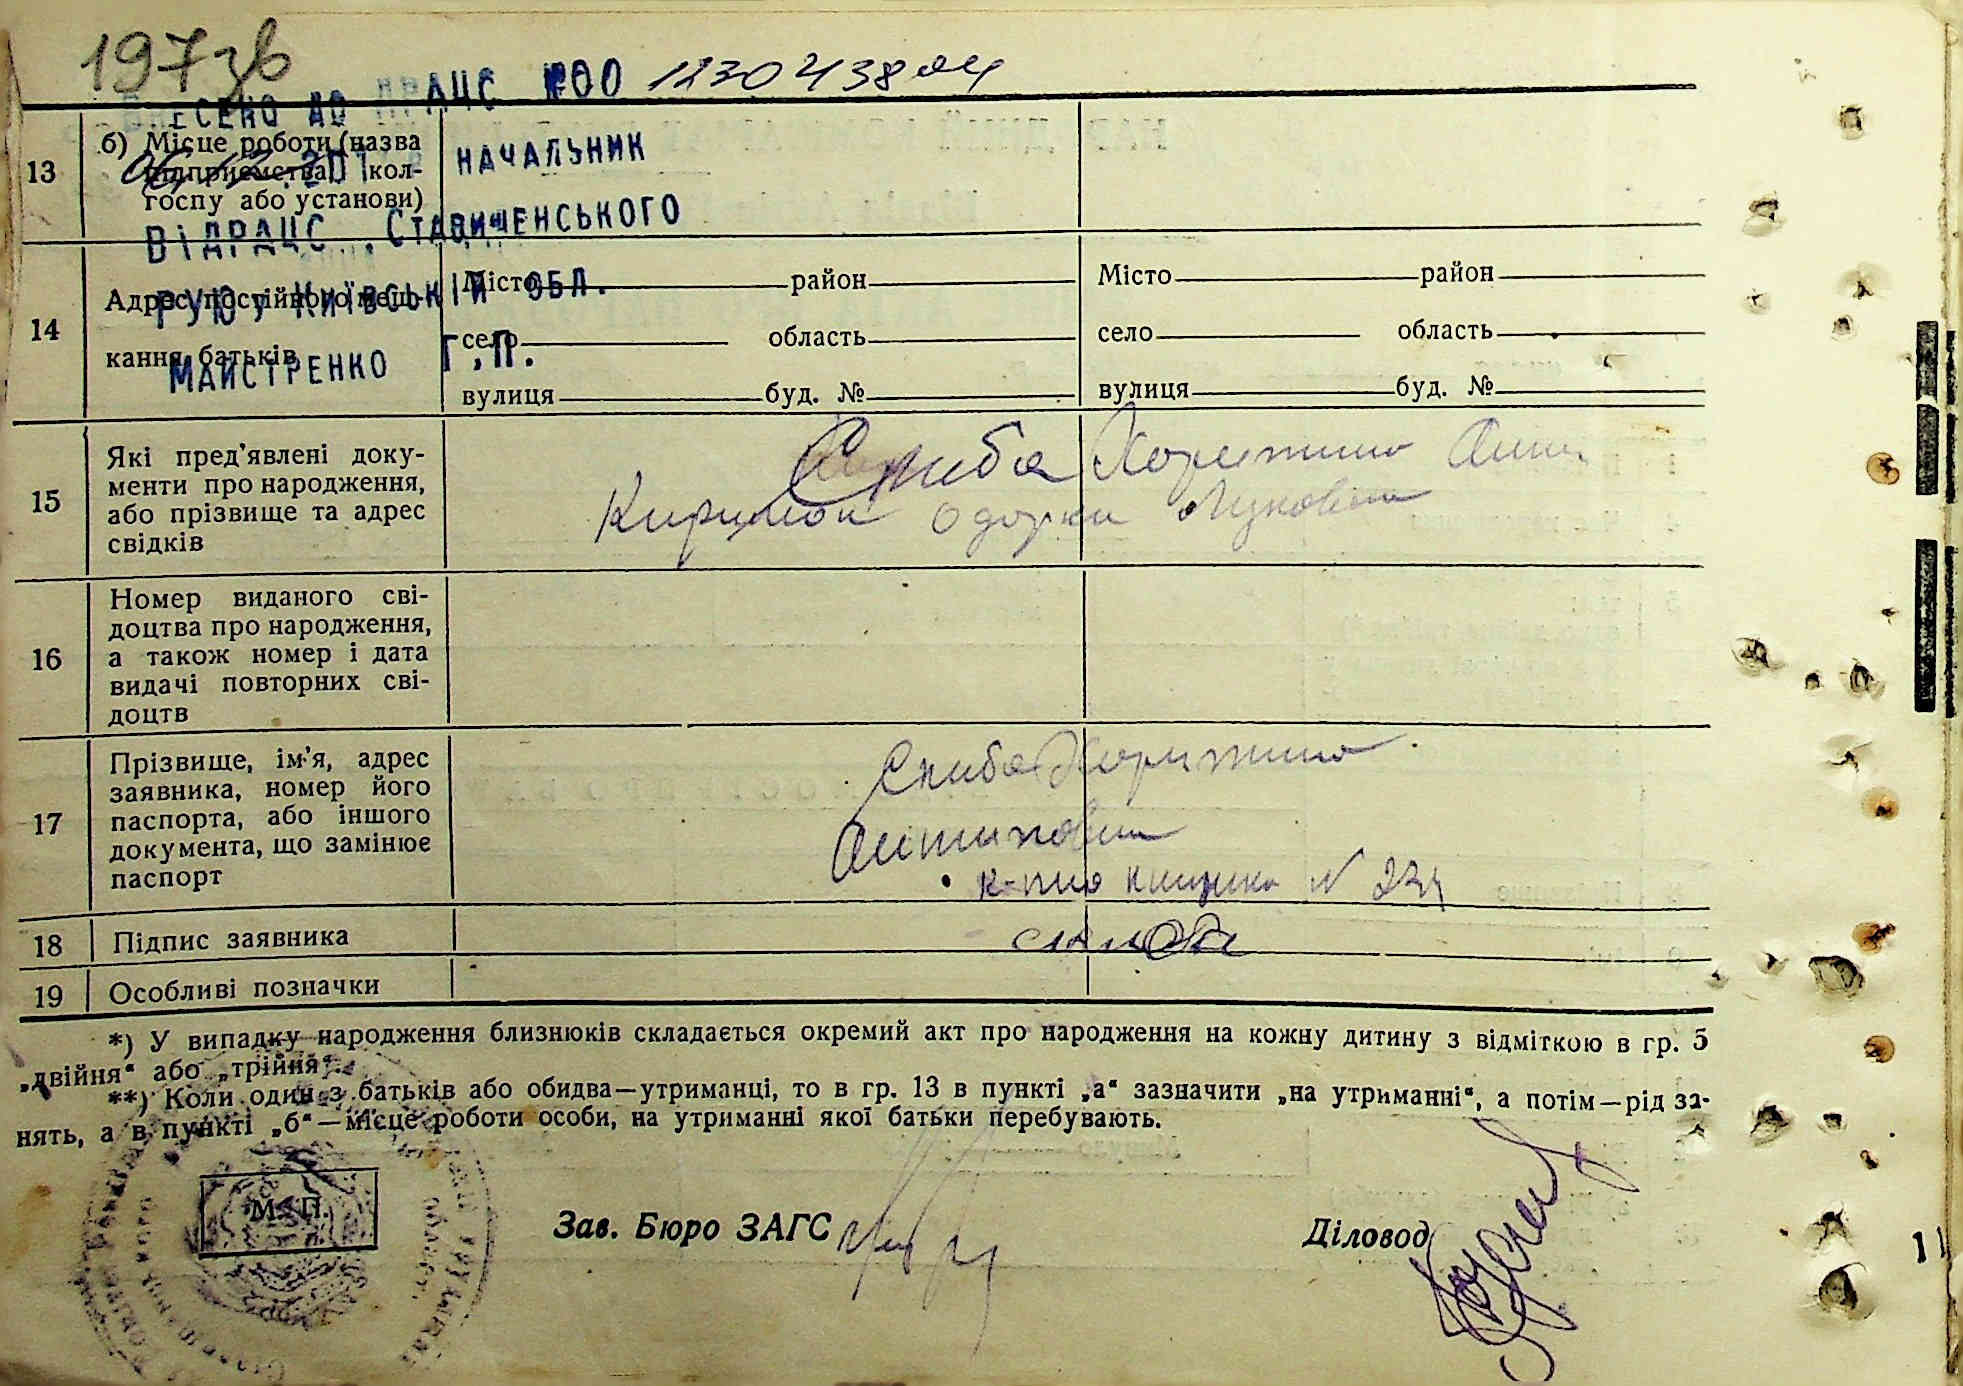 197зв
ВНЕСЕНО ДО ДРАЦС №00 1230438
06.12.201
НАЧАЛЬНИК
ВІДРАЦС Ставищенського
РУЮ у Київській обл.
МАЙСТРЕНКО Г.П.
13 б) Місце роботи (назва
підприємства, кол-
госпу або установи)
14 Адрес постійного меш-
кання батьків
Місто район
село область
вулиця буд. №
Місто район
село область
вулиця буд. №
15 Які пред'явлені доку-
менти про народження,
або прізвище та адрес
свідків
Скиба Хоритина
Одарка Луковна
16 Номер виданого сві-
доцтва про народження,
а також номер і дата
видачі повторних сві-
доцтв
17 Прізвище, ім'я, адрес
заявника, номер його
паспорта, або іншого
документа, що замінює
паспорт
Скиба Хоритина
Антиповна
N 234
18 Підпис заявника
скиба
19 Особливі позначки
*) У випадку народження близнюків складається окремий акт про народження на кожну дитину з відміткою в гр. 5
„двійня“ або „трійня“.
**) Коли один з батьків або обидва—утриманці, то в гр. 13 в пункті „а“ зазначити „на утриманні“, а потім—рід за-
нять, а в пункті „б“—місце роботи особи, на утриманні якої батьки перебувають.
М. П.
Зав. Бюро ЗАГС
Діловод